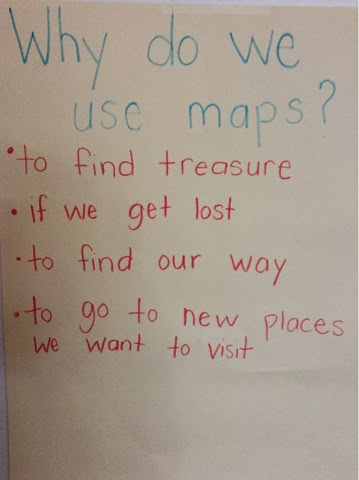 Why do we
use maps?
• to find treasure
• if we get lost
• to find our way
• to go to new places
we want to visit